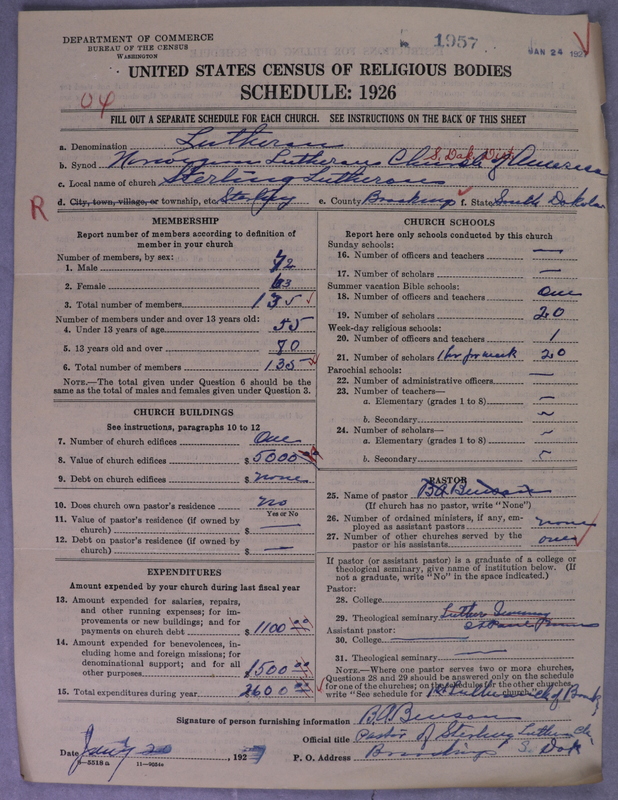 DEPARTMENT OF COMMERCE
BUREAU OF THE CENSUS
WASHINGTON
1957
JAN 24 192
UNITED STATES CENSUS OF RELIGIOUS BODIES
SCHEDULE: 1926
04
FILL OUT A SEPARATE SCHEDULE FOR EACH CHURCH. SEE INSTRUCTIONS ON THE BACK OF THIS SHEET
a. Denomination Lutheran
S. Dak. Dist.
b. Synod Norwegian Lutheran Church of America
c. Local name of church Sterling Lutheran
R
d. City, town, village, or township, etc. Sterling e. County Brookings f. State South Dakota
MEMBERSHIP
Report number of members according to definition of member in your church
Number of members, by sex:
1. Male 72
2. Female 63
3. Total number of members 135
Number of members under and over 13 years old:
4. Under 13 years of age 55
5. 13 years old and over 80
6. Total number of members 135
NOTE.—The total given under Question 6 should be the same as the total of males and females given under Question 3.
CHURCH BUILDINGS
See instructions, paragraphs 10 to 12
7. Number of church edifices One
8. Value of church edifices $ 5000
9. Debt on church edifices $ none
10. Does church own pastor's residence no
Yes or No
11. Value of pastor's residence (if owned by church) $ —
12. Debt on pastor's residence (if owned by church) $ —
EXPENDITURES
Amount expended by your church during last fiscal year
13. Amount expended for salaries, repairs, and other running expenses; for improvements or new buildings; and for payments on church debt $ 1100 00
14. Amount expended for benevolences, including home and foreign missions; for denominational support; and for all other purposes $ 1500 00
15. Total expenditures during year $ 2600 00
CHURCH SCHOOLS
Report here only schools conducted by this church
Sunday schools:
16. Number of officers and teachers —
17. Number of scholars —
Summer vacation Bible schools:
18. Number of officers and teachers One
19. Number of scholars 20
Week-day religious schools:
20. Number of officers and teachers 1
21. Number of scholars 1 hr for week 20
Parochial schools:
22. Number of administrative officers —
23. Number of teachers—
a. Elementary (grades 1 to 8) —
b. Secondary —
24. Number of scholars—
a. Elementary (grades 1 to 8) —
b. Secondary
PASTOR
25. Name of pastor B.A. Benson
(If church has no pastor, write "None")
26. Number of ordained ministers, if any, employed as assistant pastors none
27. Number of other churches served by the pastor or his assistants one
If pastor (or assistant pastor) is a graduate of a college or theological seminary, give name of institution below. (If not a graduate, write "No" in the space indicated.)
Pastor:
28. College
29. Theological seminary Luther Seminary St Paul Minn
Assistant pastor:
30. College —
31. Theological seminary —
NOTE.—Where one pastor serves two or more churches, Questions 28 and 29 should be answered only on the schedule for one of the churches; on the schedules for the other churches, write "See schedule for 1st Lutheran Ch of Brookings church."
Signature of person furnishing information B.A. Benson
Official title Pastor of Sterling Luth Ch.
Date Jany 20, 1927 P. O. Address Brookings So. Dak
8—5518 a 11—9034